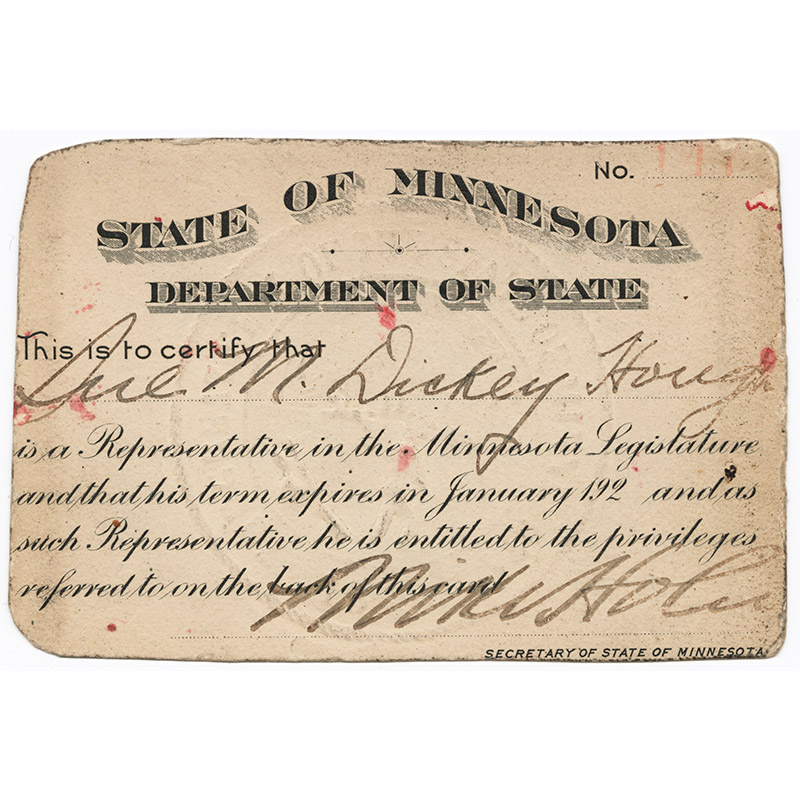 No.
STATE OF MINNESOTA
DEPARTMENT OF STATE
This is to certify that
Sue M. Dickey Hough
is a Representative in the Minnesota Legislature
and that his term expires in January 192 and as
such Representative he is entitled to the privileges
referred to on the back of this card
Mike Holm
SECRETARY OF STATE OF MINNESOTA